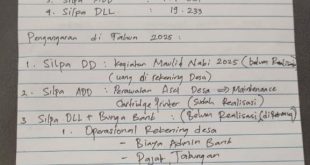 3. Silpa ADD :
4. Silpa DLL : 19.233
Penganggaran di Tahun 2025 :
1. Silpa DD : Kegiatan Maulid Nabi 2025 (belum Realisasi
(uang di rekening Desa)
2. Silpa ADD : Perawatan Aset Desa => Maintenance
Cartridge Printer (Sudah Realisasi)
3. Silpa DLL + Bunga Bank : (Belum Realisasi
1. Operasional Rekening desa
- Biaya Admin Bank
- Pajak Tabungan